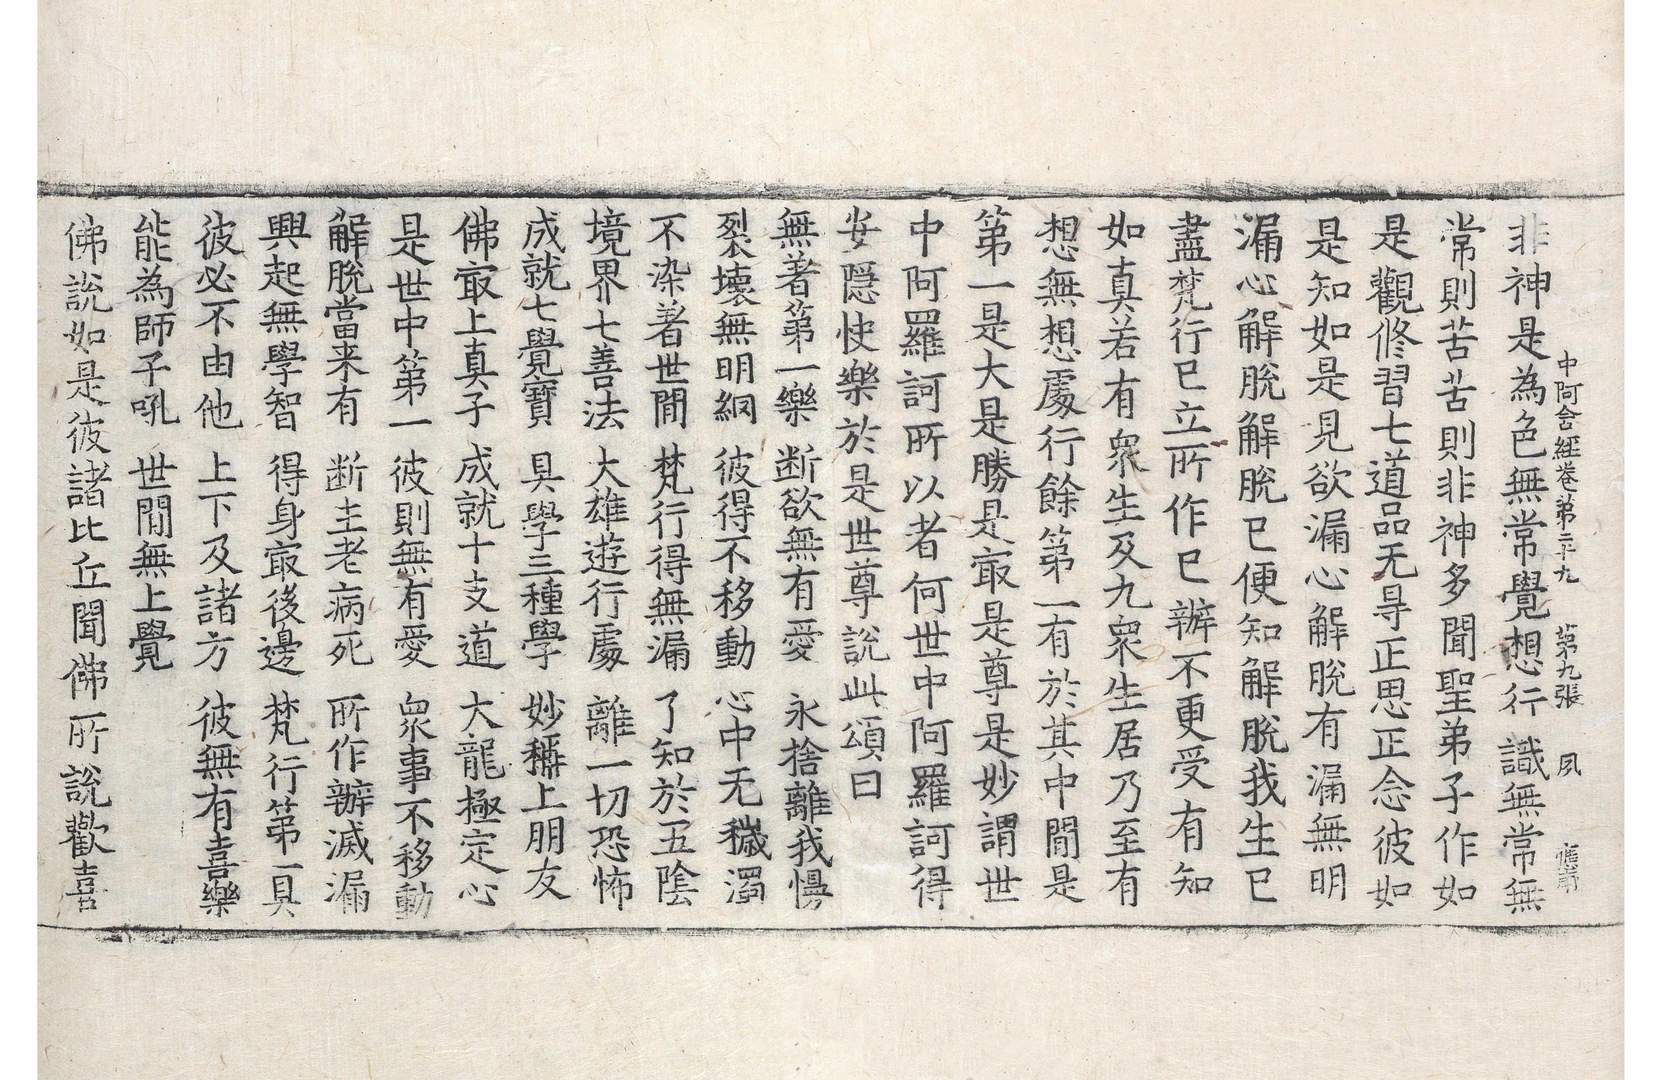 中阿含經卷第二十九 第九張 夙
非神是為色無常覺想行識無常無
常則苦苦則非神多聞聖弟子作如
是觀修習七道品无㝵正思正念彼如
是知如是見欲漏心解脫有漏無明
漏心解脫解脫已便知解脫我生已
盡梵行已立所作已辦不更受有知
如真若有衆生及九衆生居乃至有
想無想處行餘第一有於其中間是
第一是大是勝是㝡是尊是妙謂世
中阿羅訶所以者何世中阿羅訶得
安隱快樂於是世尊說此頌曰
無著第一樂 断欲無有愛 永捨離我慢
裂壞無明網 彼得不移動 心中无穢濁
不染著世間 梵行得無漏 了知於五陰
境界七善法 大雄遊行處 離一切恐怖
成就七覺寶 具學三種學 妙稱上朋友
佛㝡上真子 成就十支道 大龍極定心
是世中第一 彼則無有愛 衆事不移動
解脫當来有 断生老病死 所作辦滅漏
興起無學智 得身㝡後邊 梵行第一具
彼必不由他 上下及諸方 彼無有喜樂
能為師子吼 世間無上覺
佛說如是彼諸比丘聞佛所說歡喜